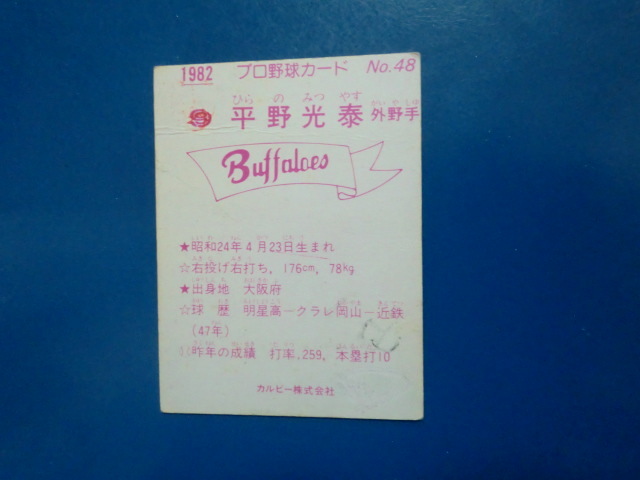 1982 プロ野球カード No.48
ひら の みつ やす
平野光泰 外野手
Buffaloes
★昭和24年4月23日生まれ
☆右投げ右打ち, 176cm, 78kg
★出身地 大阪府
☆球 歴 明星高―クラレ岡山―近鉄
(47年)
☆昨年の成績 打率.259, 本塁打10
カルビー株式会社